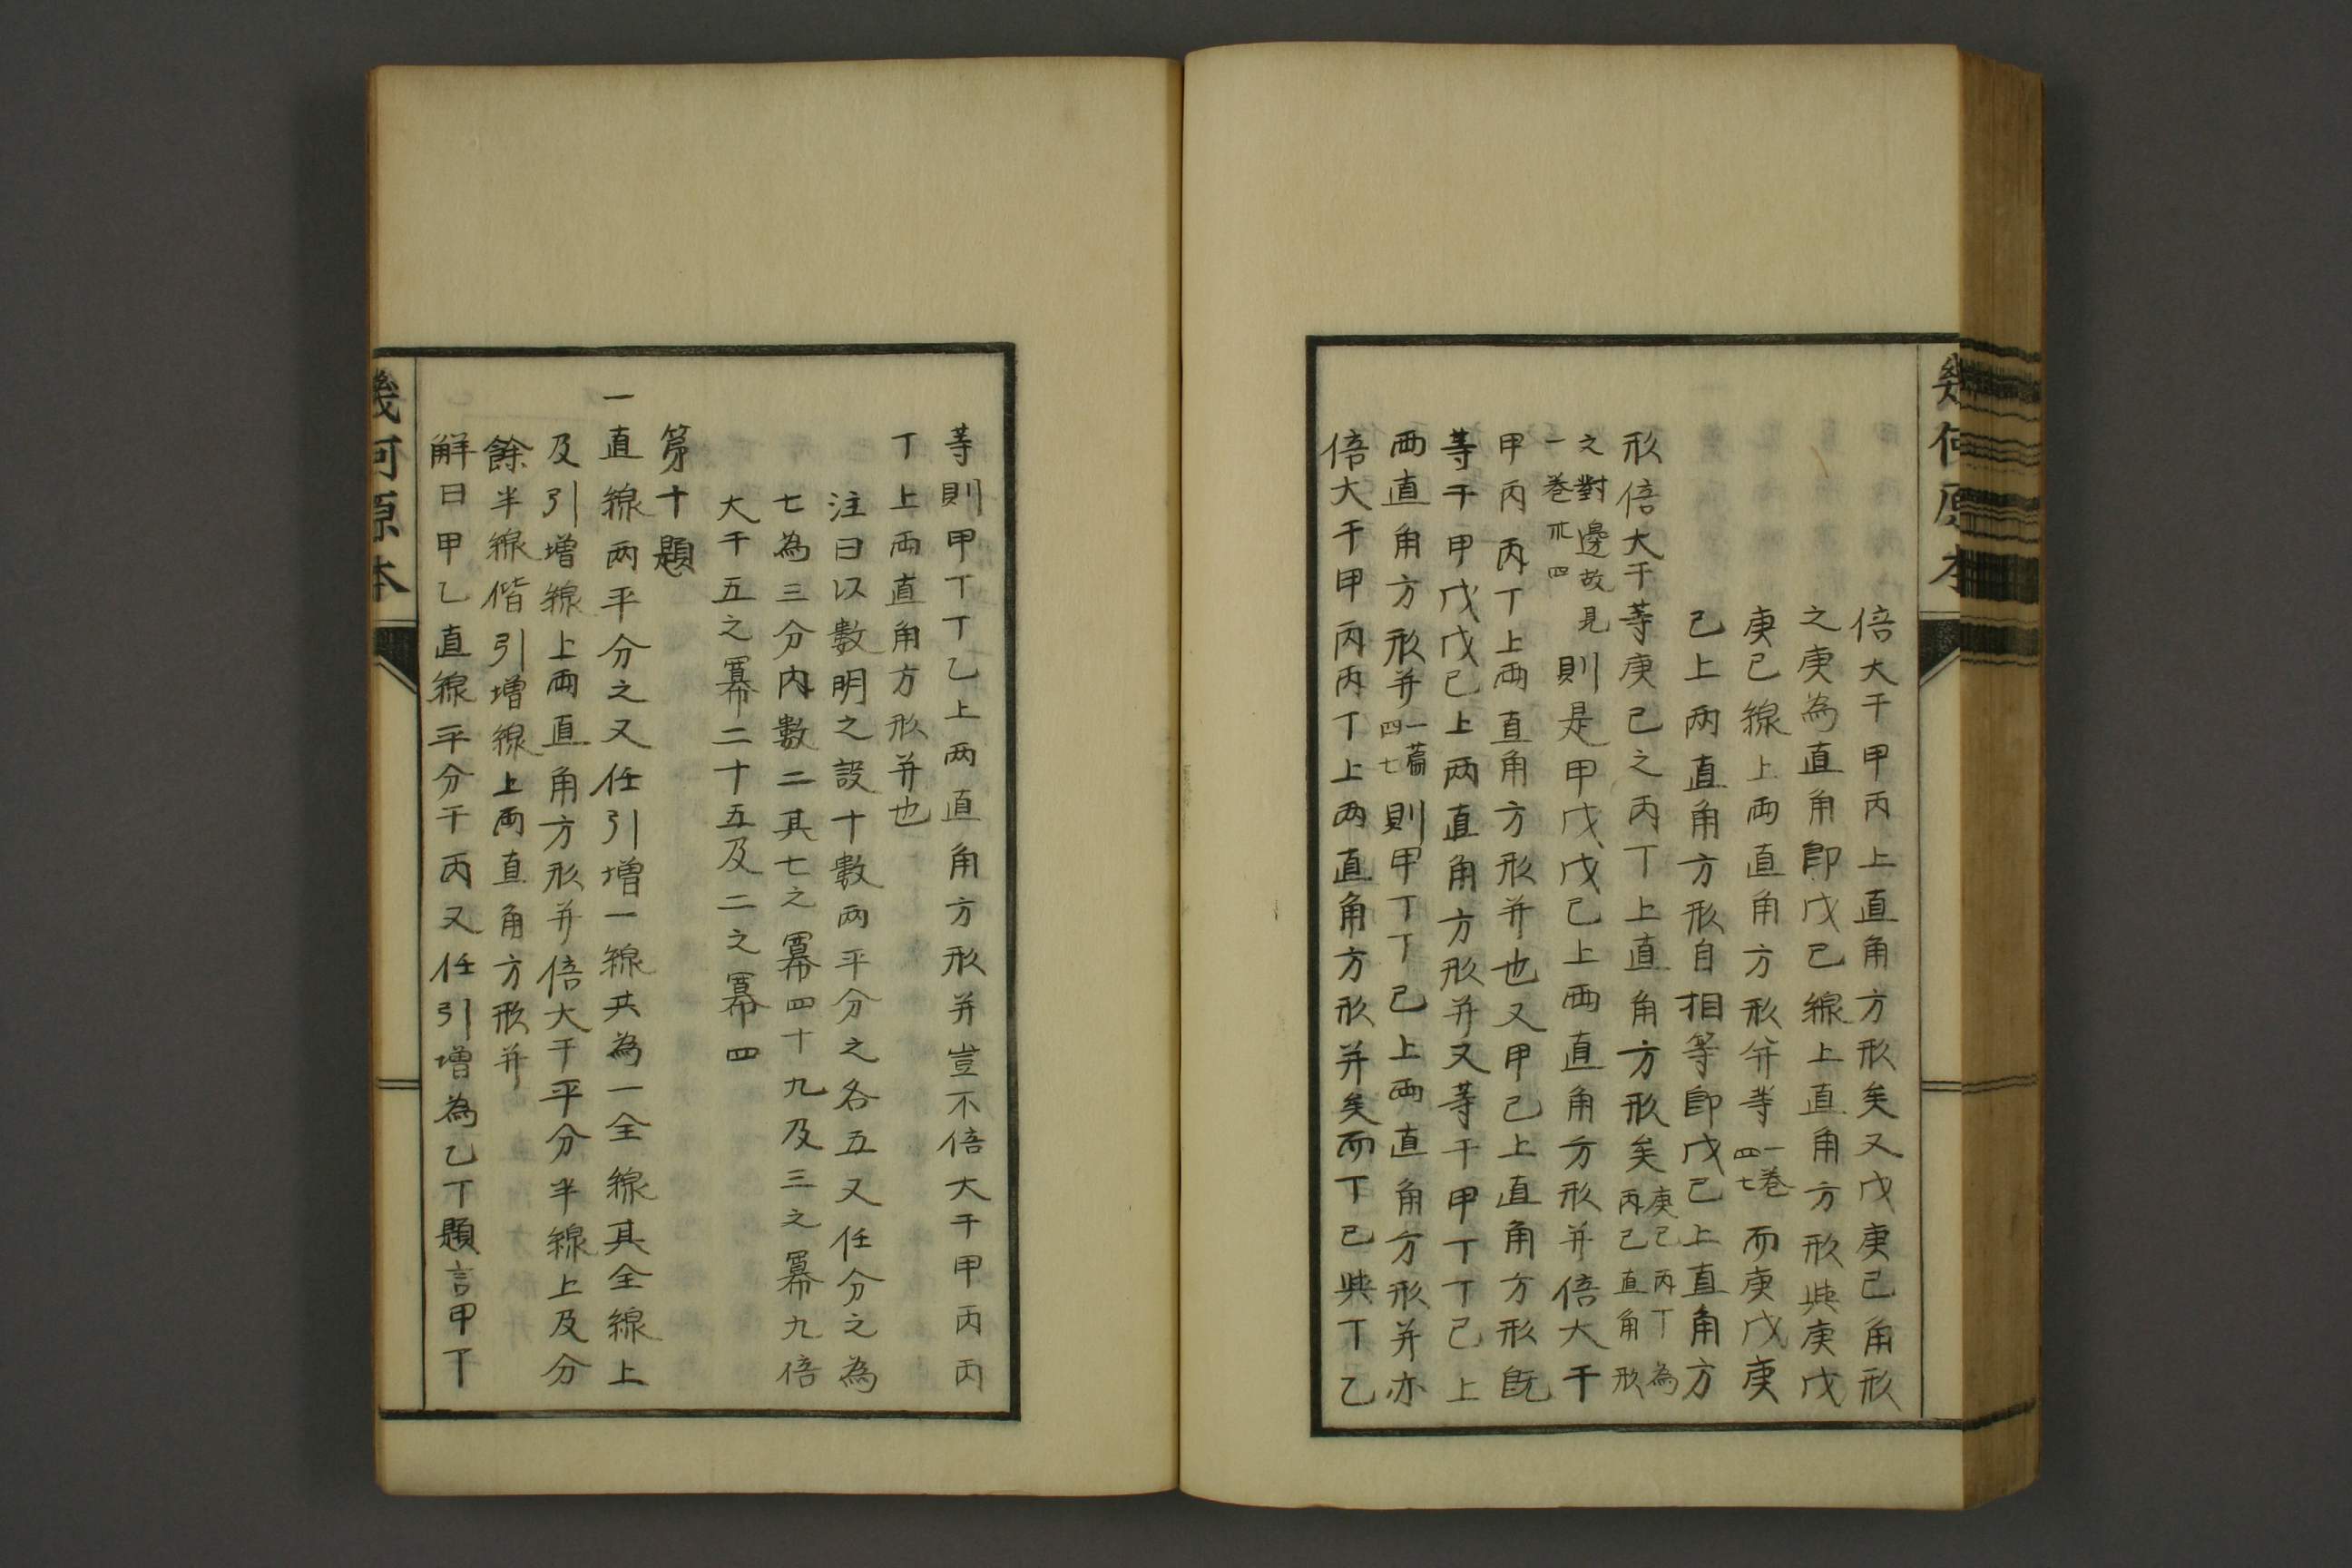 幾何原本
倍大于甲丙上直角方形矣又戊庚己角形
之庚為直角即戊己線上直角方形與庚戊
庚己線上兩直角方形并等一卷四七而庚戊庚
己上兩直角方形自相等即戊己上直角方
形倍大于等庚己之丙丁上直角方形矣庚己丙丁為丙己直角形
之對邊故見一卷卅四則是甲戊戊己上兩直角方形并倍大于
甲丙丙丁上兩直角方形并也又甲己上直角方形既
等于甲戊戊己上兩直角方形并又等于甲丁丁己上
兩直角方形并一篇四七則甲丁丁己上兩直角方形并亦
倍大于甲丙丙丁上兩直角方形并矣而丁己與丁乙
等則甲丁丁乙上兩直角方形并豈不倍大于甲丙丙
丁上兩直角方形并也
注曰以數明之設十數兩平分之各五又任分之為
七為三分內數二其七之冪四十九及三之冪九倍
大于五之冪二十五及二之冪四
第十題
一直線兩平分之又任引增一線共為一全線其全線上
及引增線上兩直角方形并倍大于平分半線上及分
餘半線偕引增線上兩直角方形并
解曰甲乙直線平分于丙又任引增為乙丁題言甲丁
幾何原本